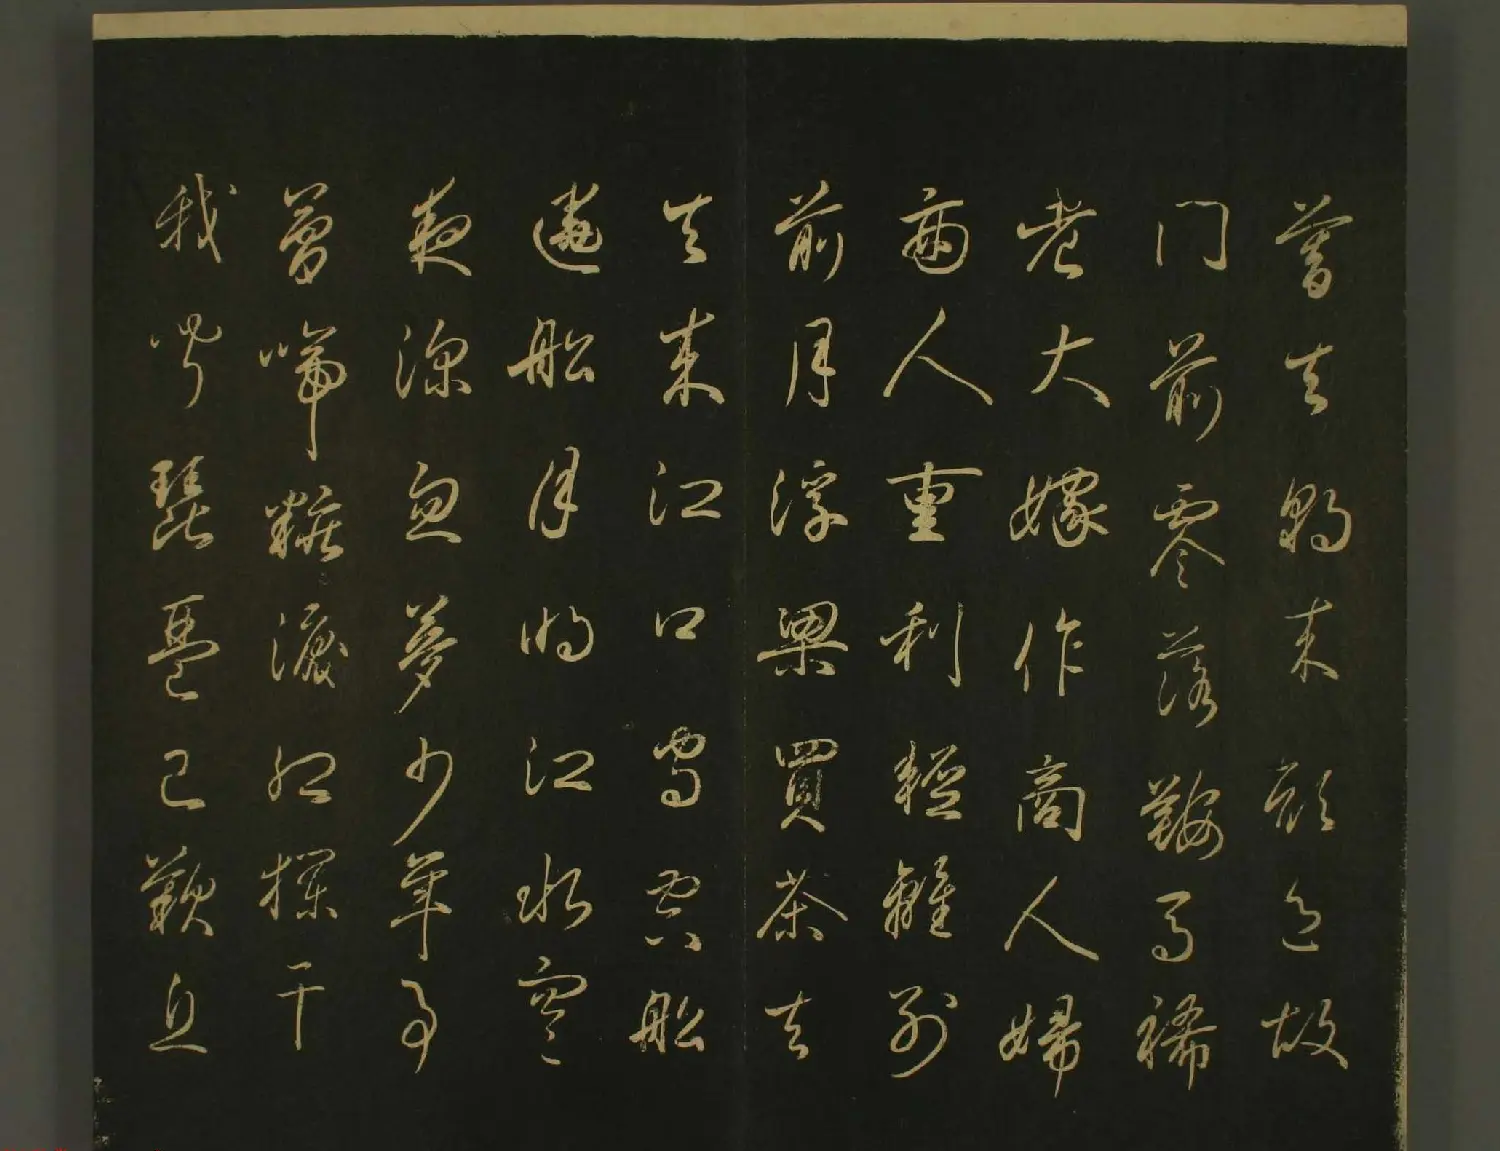 暮去朝来顏色故
門前零落鞍馬稀
老大嫁作商人婦
商人重利輕離別
前月浮梁買茶去
去来江口守空船
遶船月明江水寒
夜深忽夢少年事
夢啼粧淚紅欄干
我聞琵琶已歎息